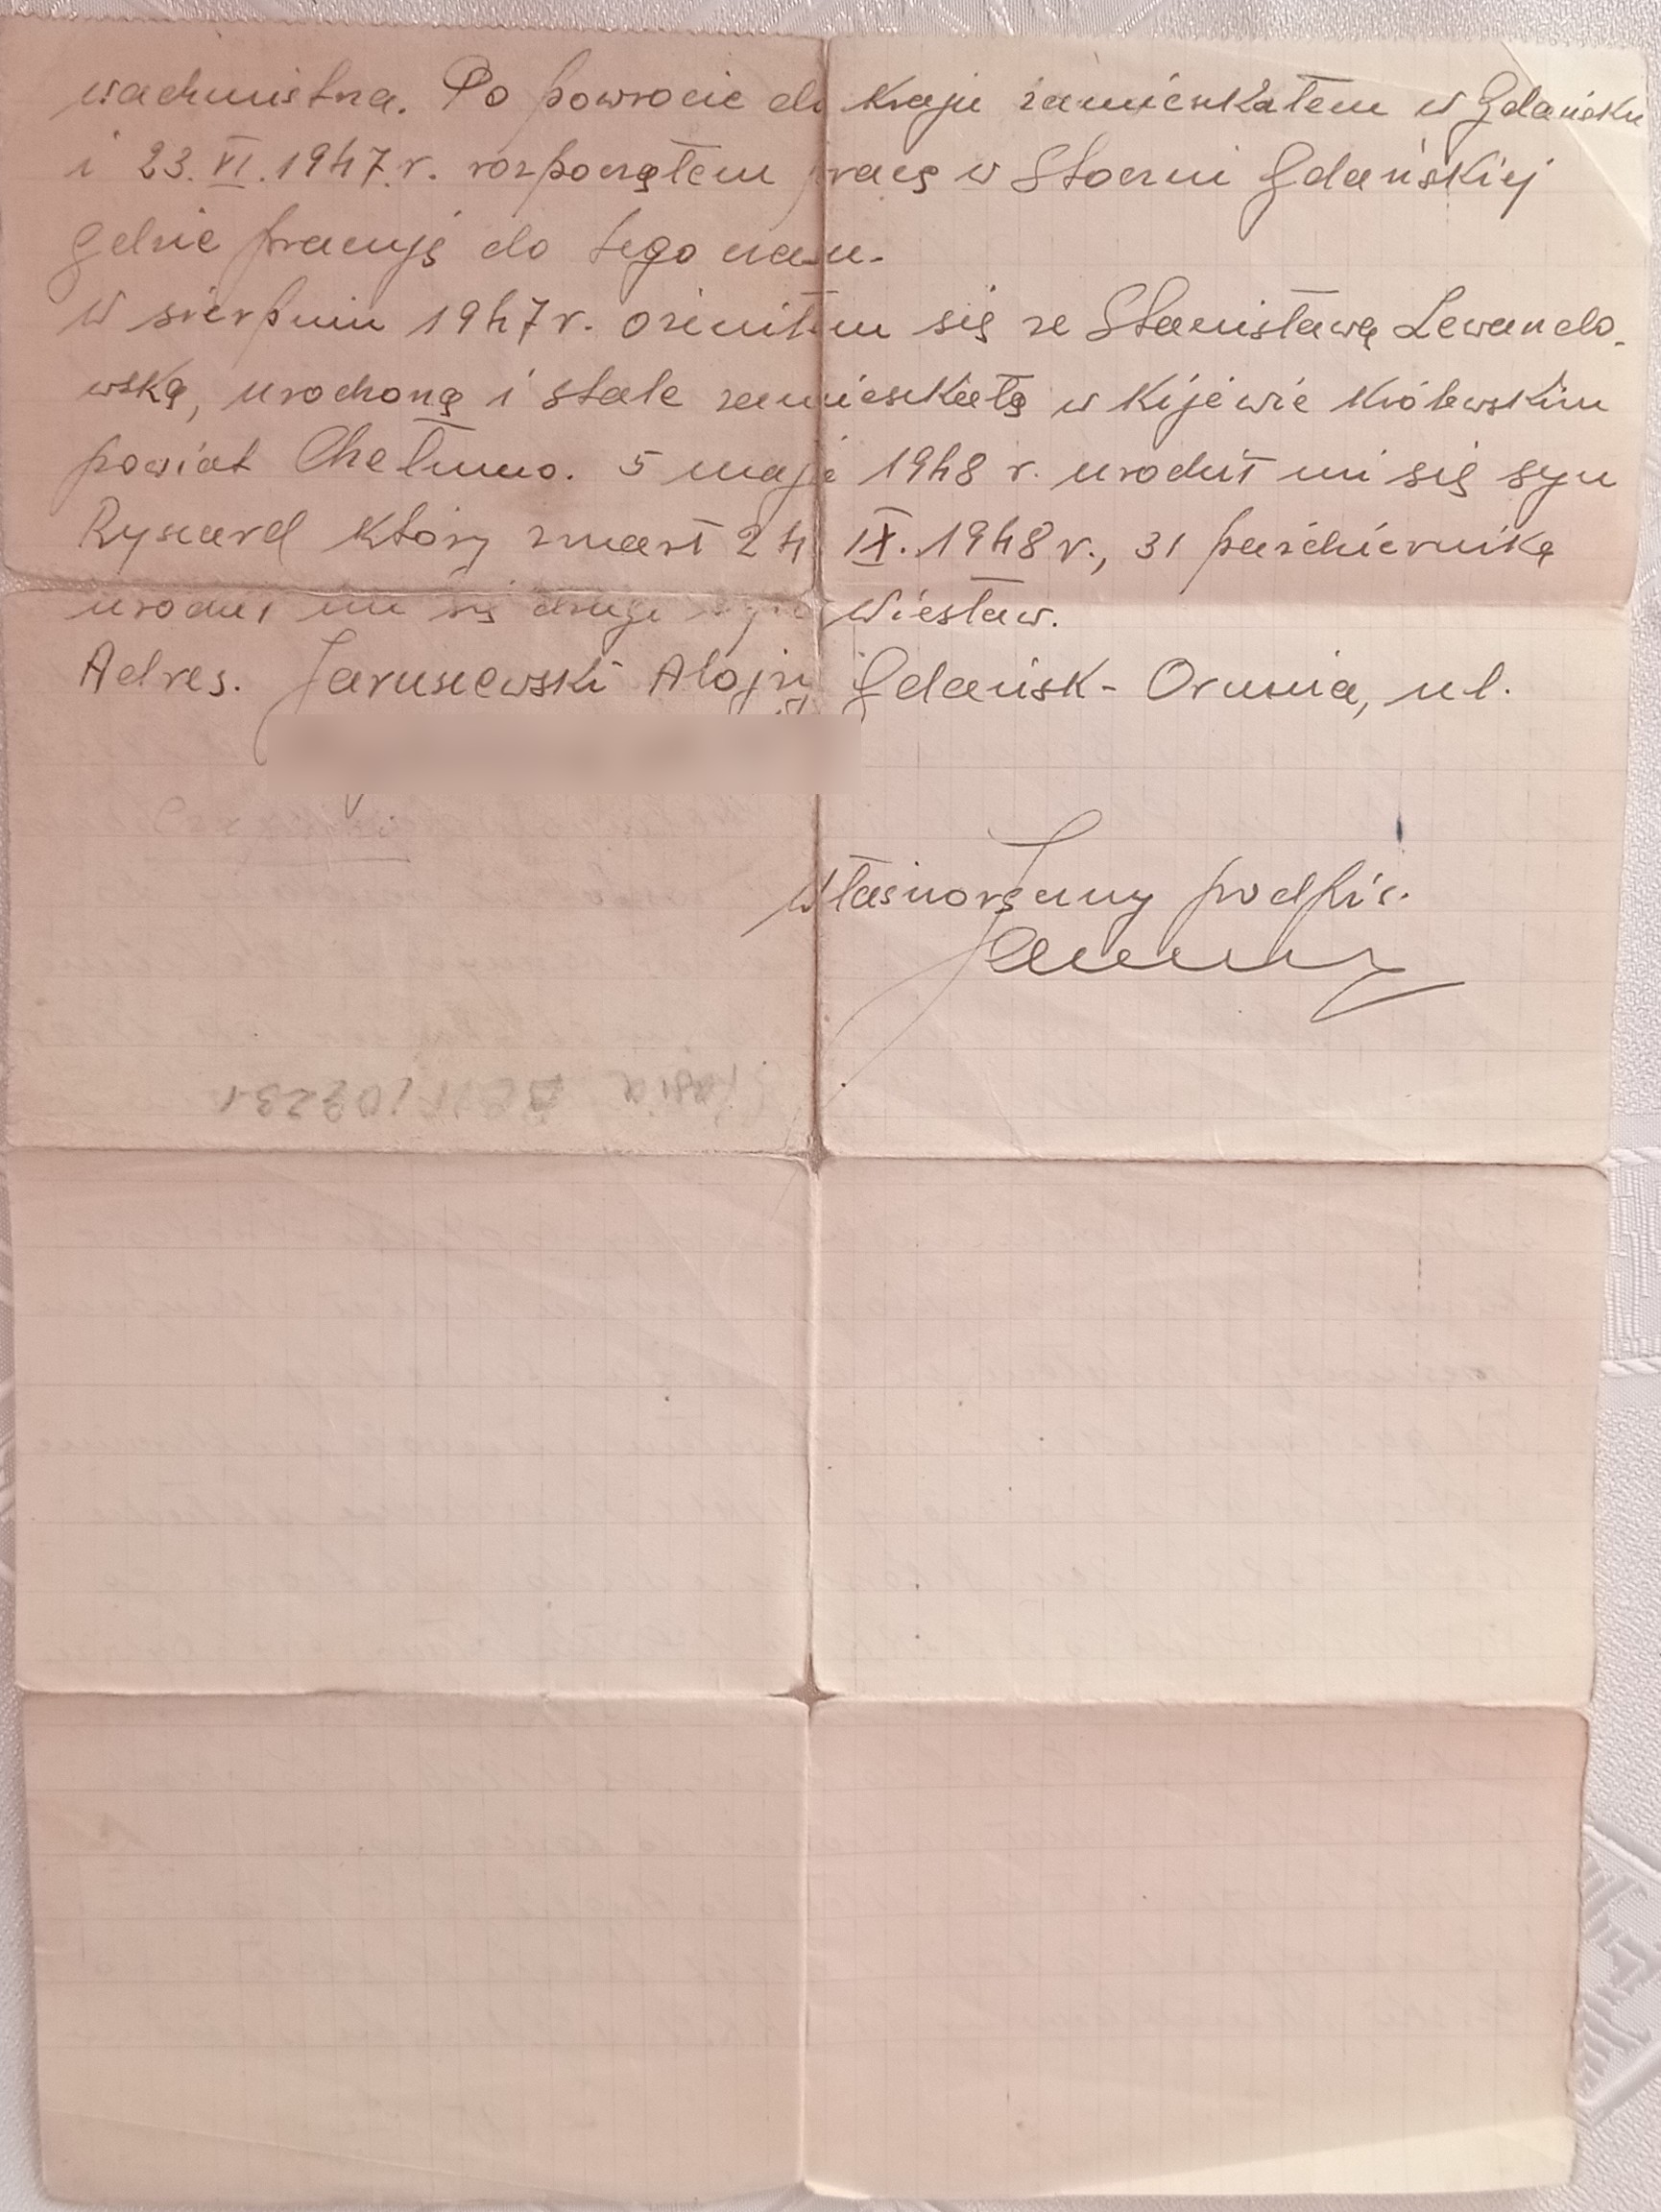 wachmistrza. Po powrocie do kraju zamieszkałem w Gdańsku
i 23.VI.1947.r. rozpocząłem pracę w Stoczni Gdańskiej
gdzie pracuję do tego czasu.
W sierpniu 1947r. ożeniłem się ze Stanisławą Lewando-
wską, urodzoną i stale zamieszkałą w Kijewie Królewskim
powiat Chełmno. 5 maja 1948 r. urodził mi się syn
Ryszard który zmarł 24 IX.1948r., 31 października
urodził mi się drugi syn Wiesław.
Adres. Jaruszewski Alojzy Gdańsk-Orunia, ul.
Własnoręczny podpis.